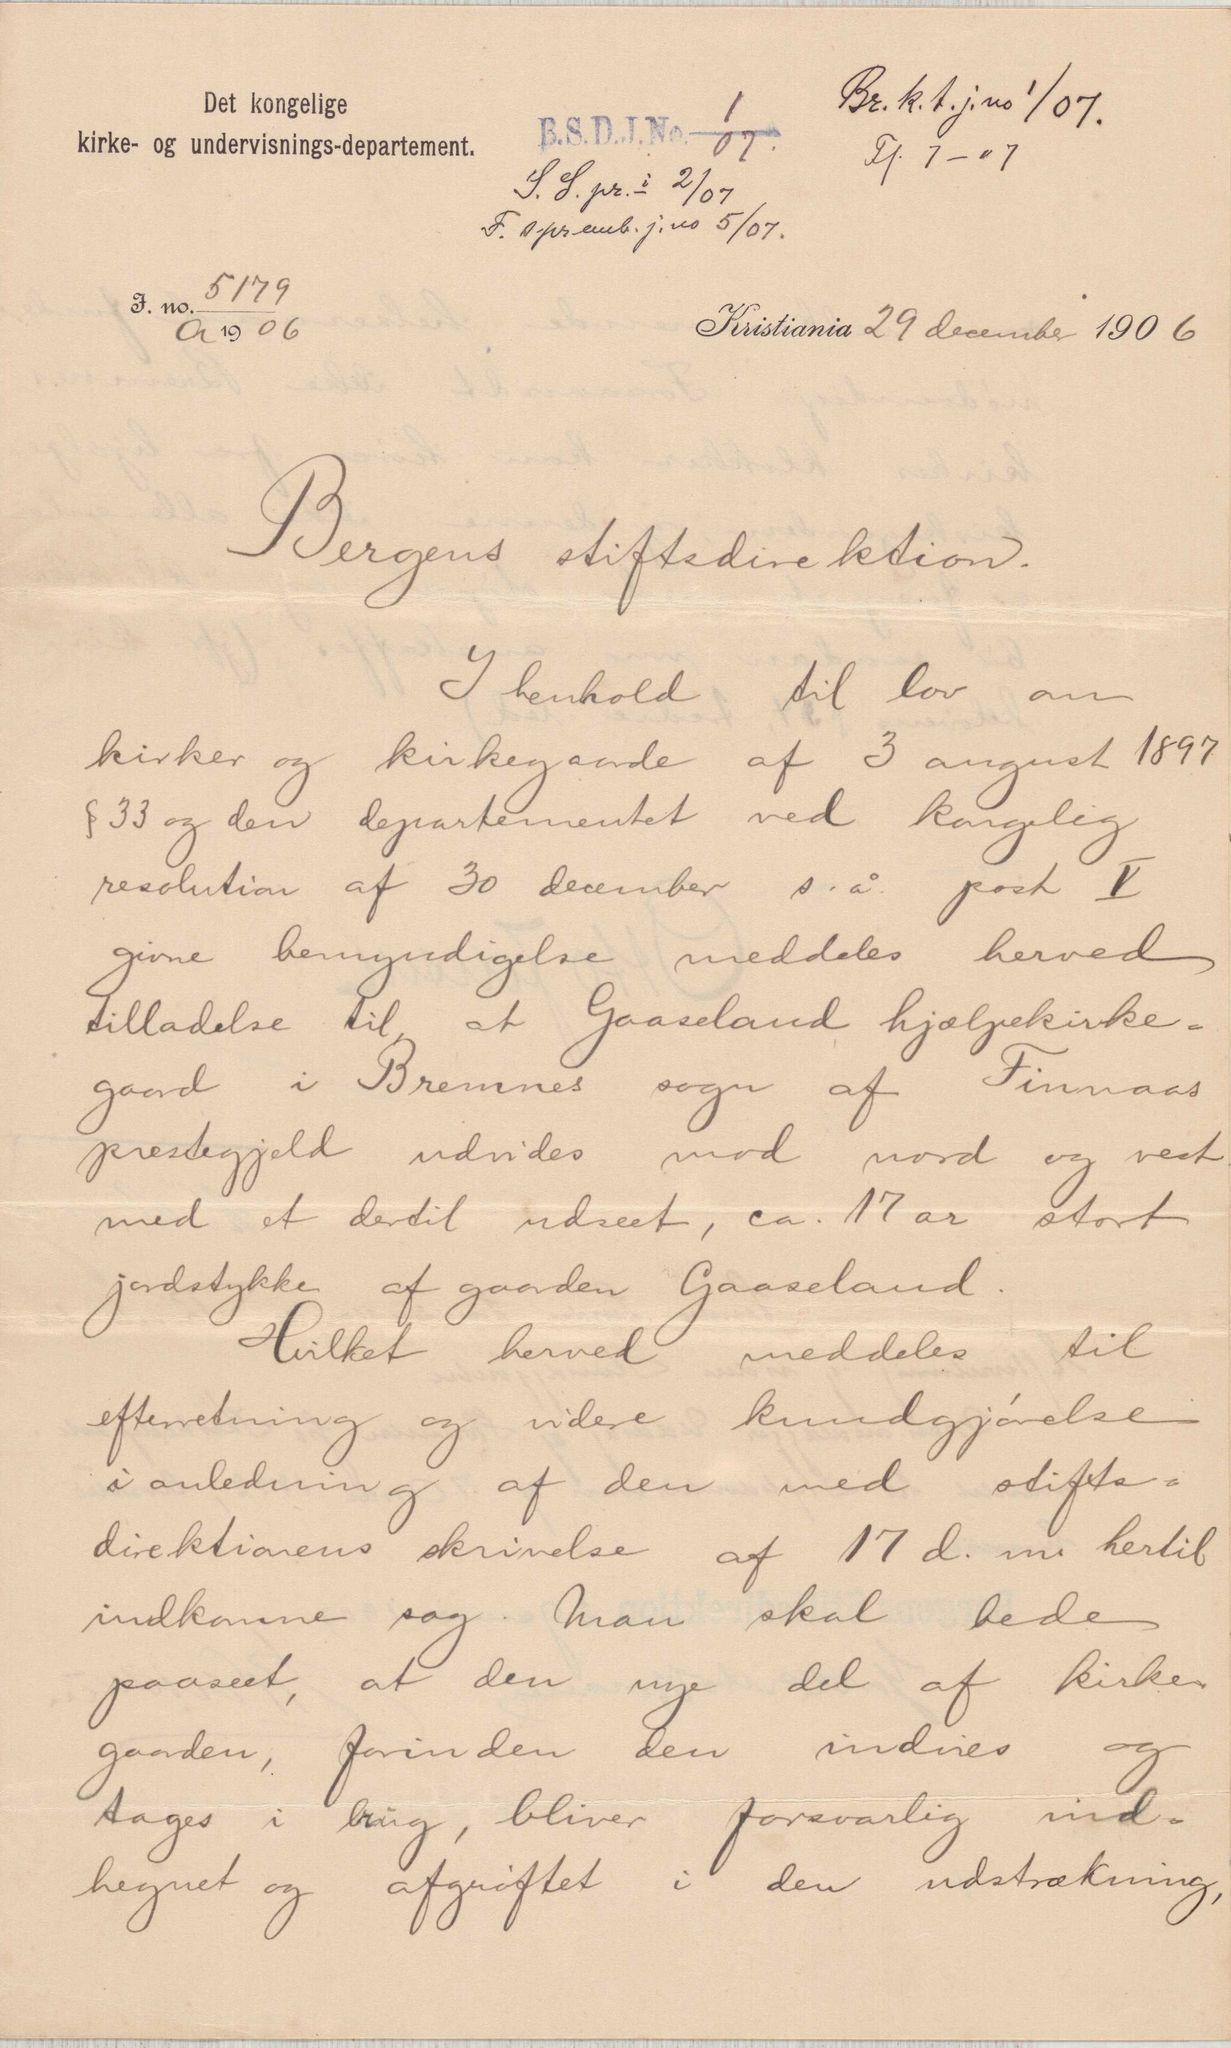 Det kongelige
kirke- og undervisnings-departement.
B.S.D.J.No. 1/07.
Br. k. t. j. no 1/07.
7-07
S. S. pr. i 2/07
F. spremb. j. no 5/07.
J. no. 5179
A 1906
Kristiania 29 december 1906
Bergens stiftsdirektion.
I henhold til lov om
kirker og kirkegaarde af 3 august 1897
§ 33 og den departementet ved kongelig
resolution af 30 december s. å. post V
givne bemyndigelse meddeles herved
tilladelse til, at Gaaseland hjælpekirke-
gaard i Bremnes sogn af Finnaas
prestegjeld udvides mod nord og vest
med et dertil udseet, ca. 17 ar stort
jordstykke af gaarden Gaaseland.
Hvilket herved meddeles til
efterretning og videre kundgjørelse
i anledning af den med stifts-
direktionens skrivelse af 17 d. m. hertil
indkomne sag. Man skal bede
paaseet, at den nye del af kirke-
gaarden, forinden den indvies og
tages i brug, bliver forsvarlig ind-
hegnet og afgrøftet i den udstrækning,